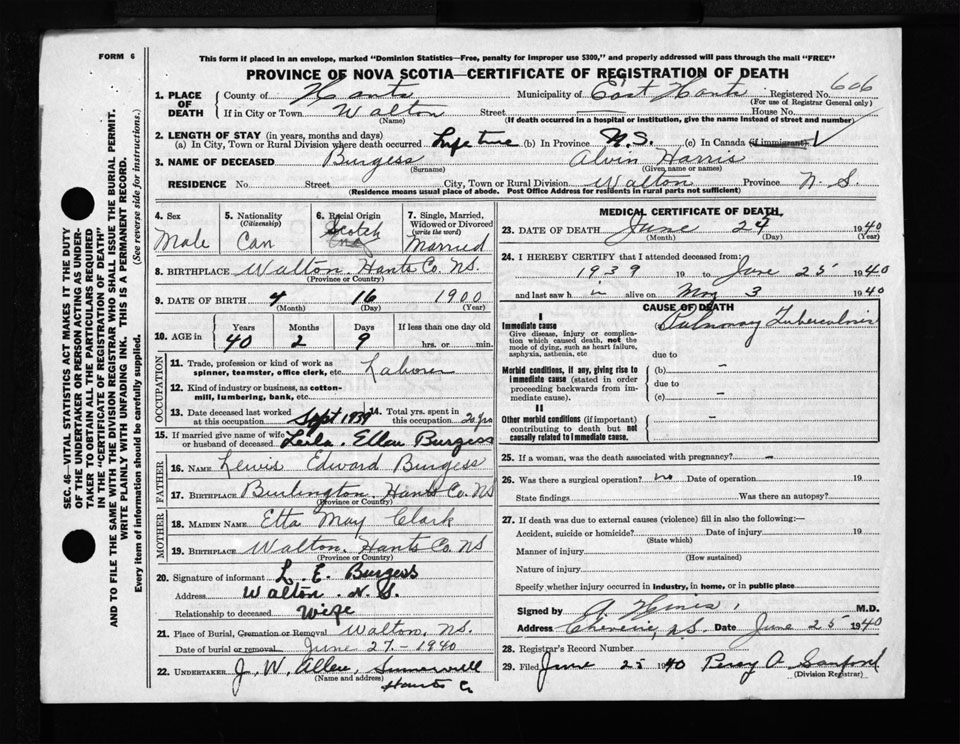 FORM 6
This form if placed in an envelope, marked "Dominion Statistics—Free, penalty for improper use $300," and properly addressed will pass through the mail "FREE"
PROVINCE OF NOVA SCOTIA—CERTIFICATE OF REGISTRATION OF DEATH
1. PLACE OF DEATH
County of Hants Municipality of East Hants Registered No. 606
(For use of Registrar General only)
If in City or Town Walton Street House No.
(Name) (If death occurred in a hospital or institution, give the name instead of street and number)
2. LENGTH OF STAY (in years, months and days)
(a) In City, Town or Rural Division where death occurred Life time (b) In Province N.S. (c) In Canada (if immigrant)
3. NAME OF DECEASED Burgess Alvin Harris
(Surname) (Given name or names)
RESIDENCE No. Street City, Town or Rural Division Walton Province N.S.
(Residence means usual place of abode. Post Office Address for residents in rural parts not sufficient)
4. Sex Male
5. Nationality (Citizenship) Can
6. Racial Origin Scotch Eng
7. Single, Married, Widowed or Divorced (write the word) Married
8. BIRTHPLACE Walton. Hants Co. NS.
(Province or Country)
9. DATE OF BIRTH 4 16 1900
(Month) (Day) (Year)
10. AGE in Years Months Days If less than one day old
40 2 9 hrs. or min.
OCCUPATION
11. Trade, profession or kind of work as spinner, teamster, office clerk, etc. Labourer
12. Kind of industry or business, as cotton-mill, lumbering, bank, etc.
13. Date deceased last worked at this occupation Sept 1939
14. Total yrs. spent in this occupation 20 yrs
15. If married give name of wife or husband of deceased Leila. Ellen Burgess
FATHER
16. NAME Lewis Edward Burgess
17. BIRTHPLACE Burlington, Hants Co. NS
(Province or Country)
MOTHER
18. MAIDEN NAME Etta May Clark
19. BIRTHPLACE Walton. Hants Co. NS
(Province or Country)
20. Signature of informant L. E. Burgess
Address Walton N. S.
Relationship to deceased Wife
21. Place of Burial, Cremation or Removal Walton, NS.
Date of burial or removal June 27 - 1940
22. UNDERTAKER J. W. Allen, Summerville
(Name and address) Hants Co
MEDICAL CERTIFICATE OF DEATH
23. DATE OF DEATH June 25 1940
(Month) (Day) (Year)
24. I HEREBY CERTIFY that I attended deceased from:
1939 19 to June 25 1940
and last saw h im alive on May 3 1940
CAUSE OF DEATH
I
Immediate cause (a) Pulmonary Tuberculosis
Give disease, injury or complication which caused death, not the mode of dying, such as heart failure, asphyxia, asthenia, etc
due to
Morbid conditions, if any, giving rise to immediate cause (stated in order proceeding backwards from immediate cause).
(b) –
due to
(c) –
II
Other morbid conditions (if important) contributing to death but not causally related to immediate cause. –
25. If a woman, was the death associated with pregnancy? –
26. Was there a surgical operation? no Date of operation 19
State findings Was there an autopsy?
27. If death was due to external causes (violence) fill in also the following:—
Accident, suicide or homicide? Date of injury 19
(State which)
Manner of injury
(How sustained)
Nature of injury
Specify whether injury occurred in industry, in home, or in public place
Signed by A. Hines, M.D.
Address Cheverie, N.S. Date June 25 1940
28. Registrar's Record Number
29. Filed June 25 1940 Percy A Sanford
(Division Registrar)
SEC. 46—VITAL STATISTICS ACT MAKES IT THE DUTY
OF THE UNDERTAKER OR PERSON ACTING AS UNDER-
TAKER TO OBTAIN ALL THE PARTICULARS REQUIRED
IN THE "CERTIFICATE OF REGISTRATION OF DEATH"
AND TO FILE THE SAME WITH THE DIVISION REGISTRAR WHO SHALL ISSUE THE BURIAL PERMIT.
WRITE PLAINLY WITH UNFADING INK. THIS IS A PERMANENT RECORD.
Every item of information should be carefully supplied. (See reverse side for instructions.)